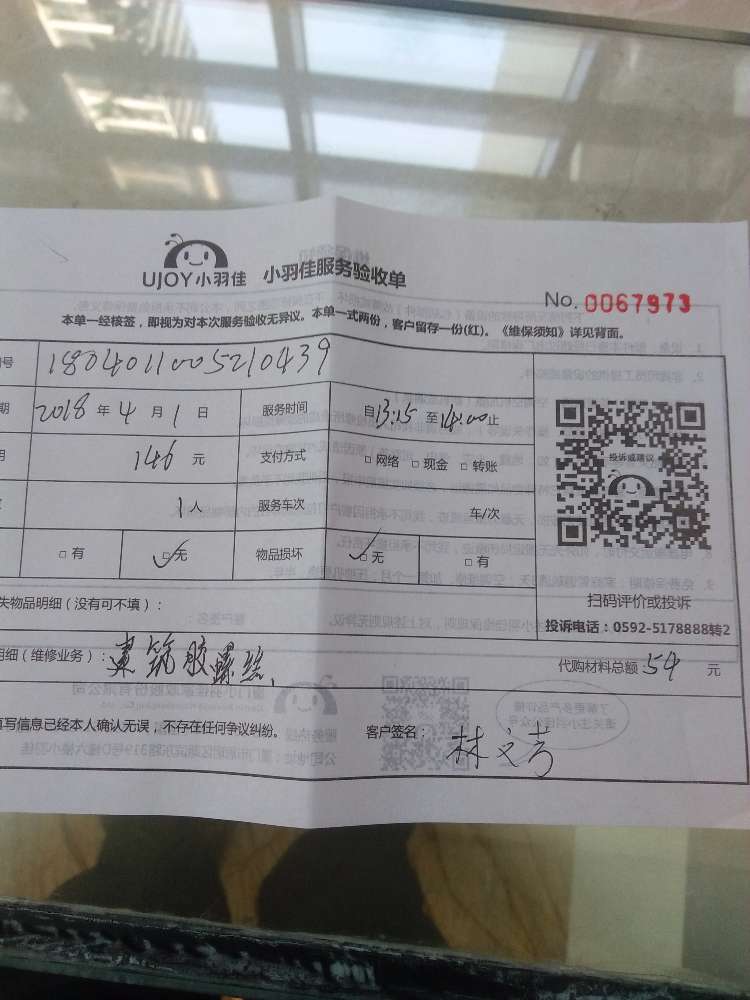 UJOY小羽佳 小羽佳服务验收单
No. 0067973
本单一经核签，即视为对本次服务验收无异议。本单一式两份，客户留存一份(红)。《维保须知》详见背面。
号 1804011005210439
期 2018 年 4 月 1 日 服务时间 自 13:15 至 14:00 止
146 元 支付方式 □ 网络 □ 现金 □ 转账
投诉或建议
1 人 服务车次 车/次
□ 有 □ 无 物品损坏 □ 无 □ 有
扫码评价或投诉
失物品明细（没有可不填）：
投诉电话：0592-5178888转2
明细（维修业务）：建筑胶螺丝 代购材料总额 54 元
填写信息已经本人确认无误，不存在任何争议纠纷。 客户签名：林文芳